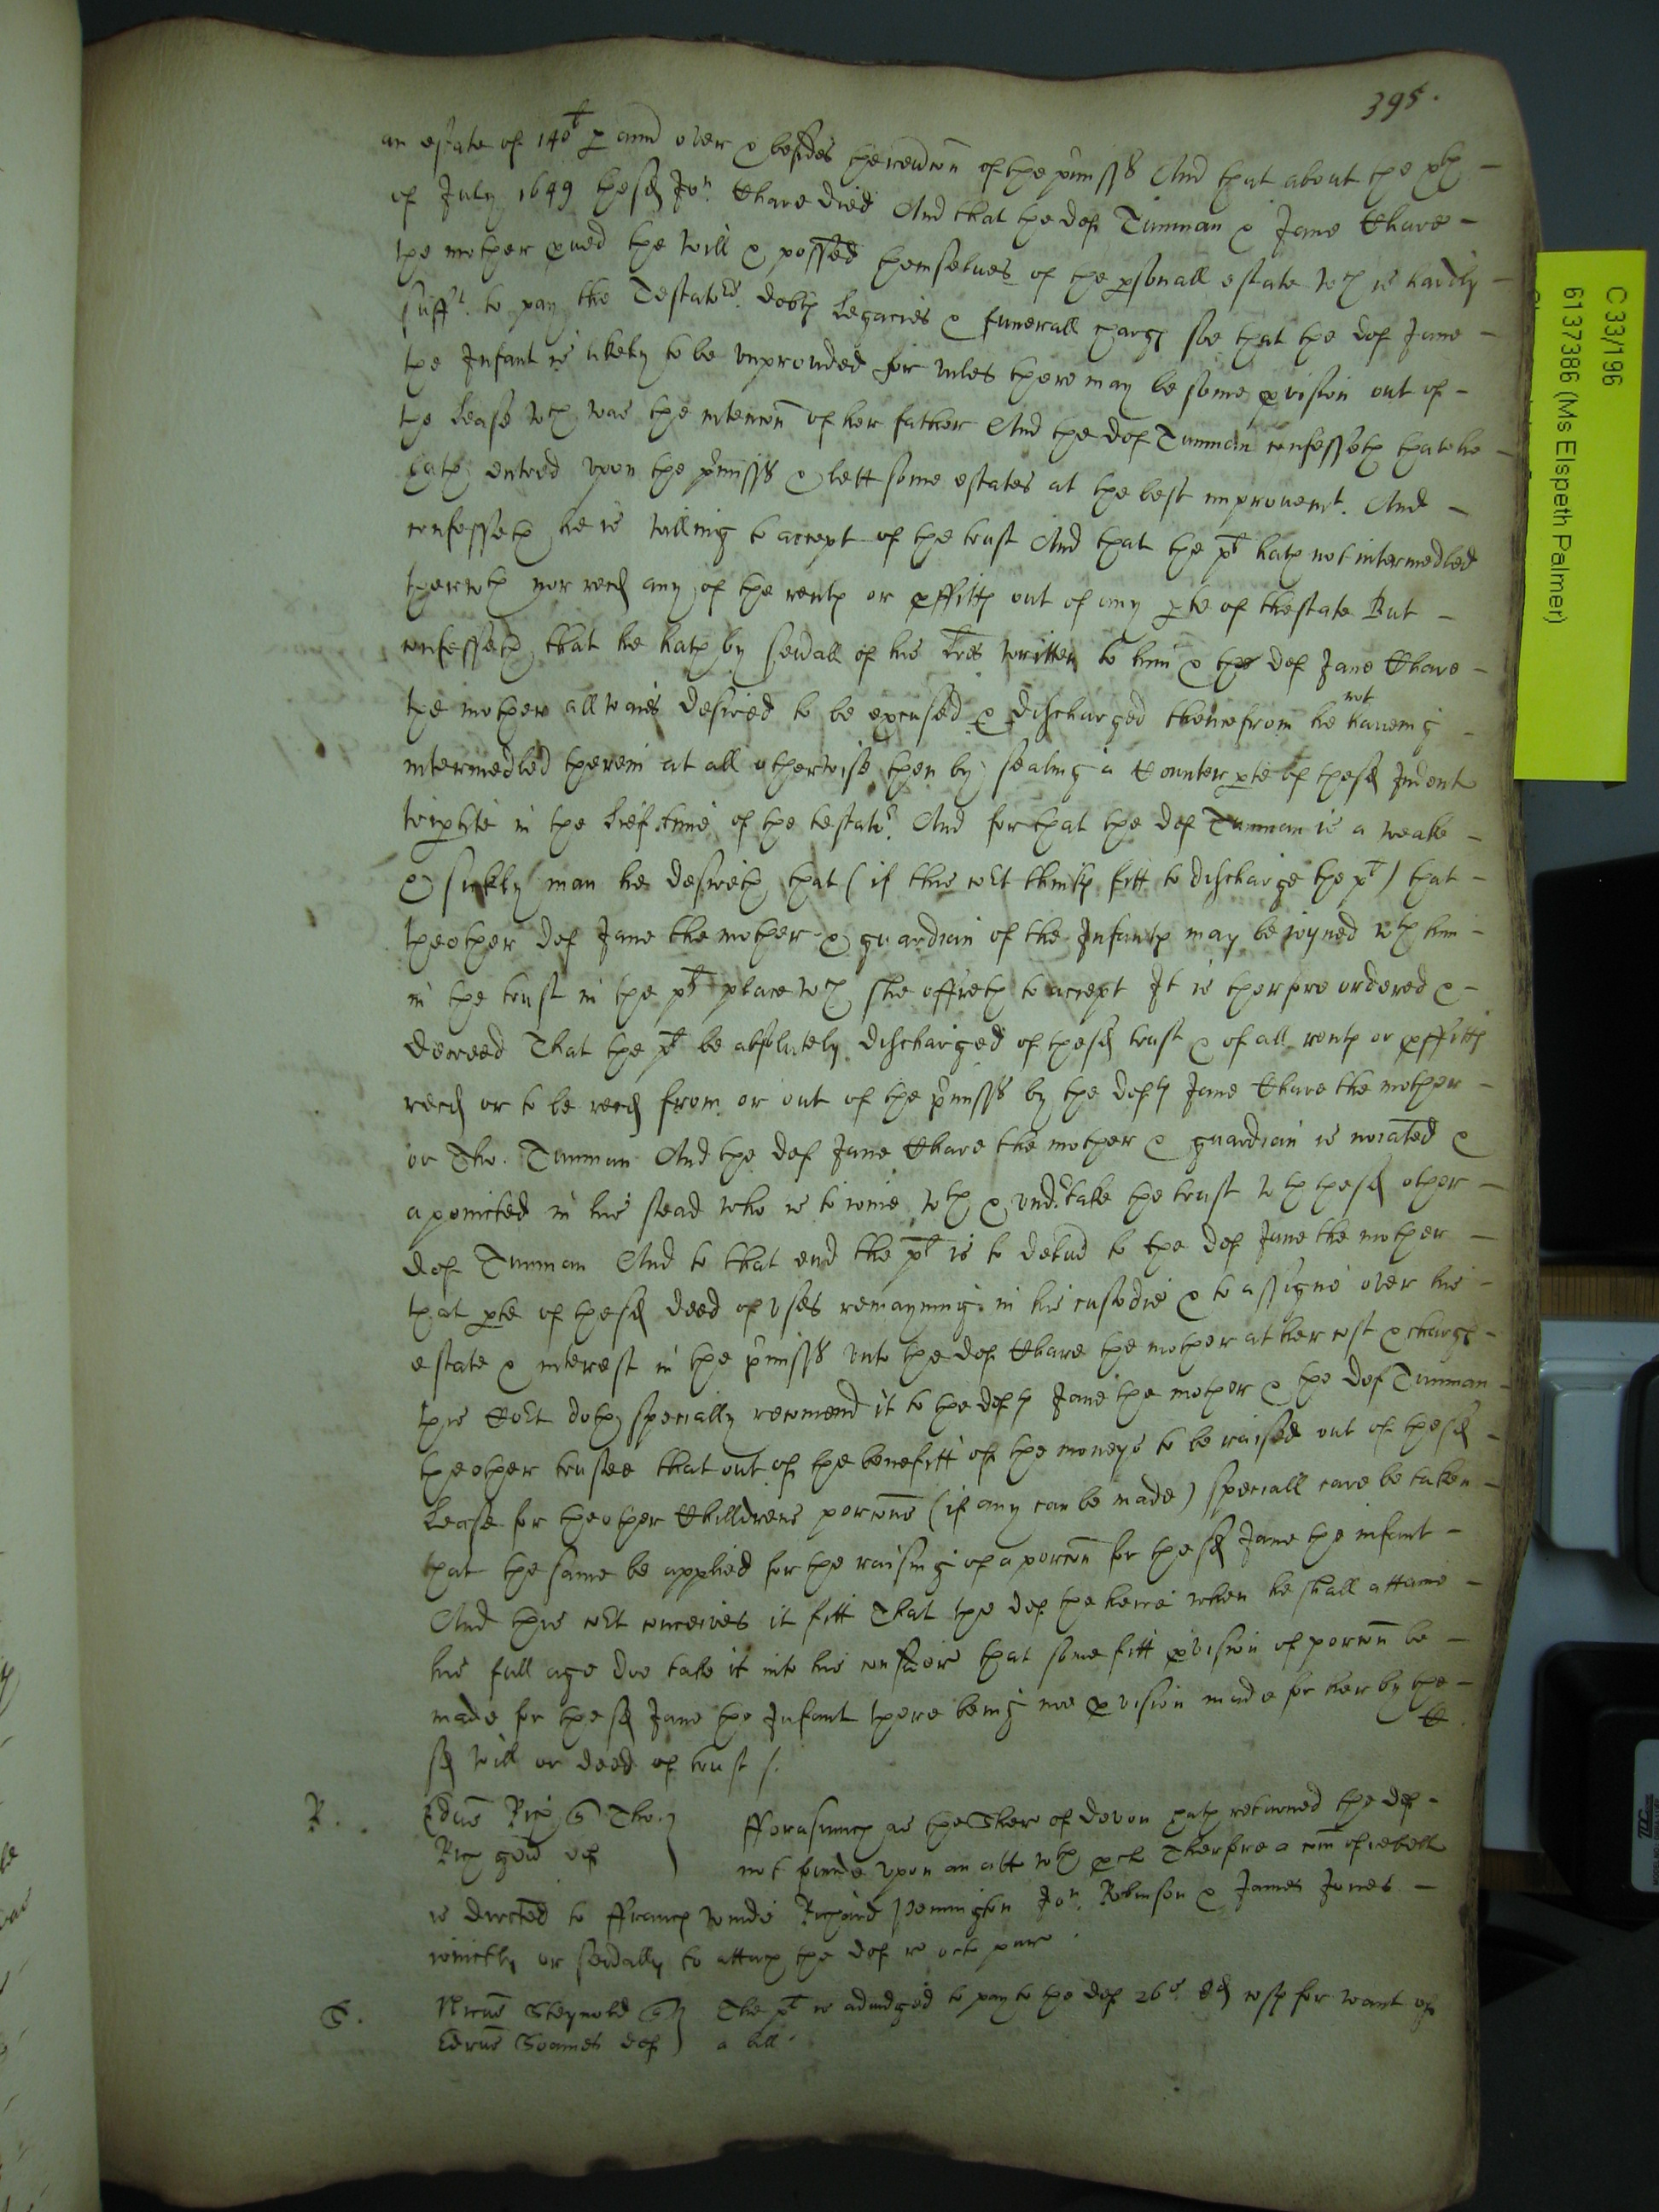 395.
an estate of 140l p ann over & besides the revercon of the pmisss And that about the xth
of July 1649 the sd Jon. Chare died And that the def Tinman & Jane Chare
the mother pued the will & possed themselues of the psonall estate wch is hardly
suff.t to pay the Testators debts Legacies & funerall chargs soe that the def Jane
the Infant is likely to be vnprouided for vnles there may be some pvision out of
the Lease wch was the intencon of her father And the def Tinman confesseth that he
hath entred vpon the pmisss & lett some estates at the best improuemt. And
confesseth he is willing to accept of the trust And that the plt hath not intermedled
therwth nor recd any of the rents or pffitts out of any pte of thestate But
confesseth that he hath by seuall of his Lres written to him & the def Jane Chare
the mother allwaies desired to be excused & discharged thenfrom he not haueing
intermedled therein at all otherwise then by sealing a Counterpte of the sd Indent
triptite in the Lief time of the testator. And for that the def Tinman is a weake
& sickly man he desireth that (if this cort thinks fitt to discharge the plt) that
theother def Jane the mother & guardian of the Infants may be joyned wth him
in the trust in the plts place wch she offreth to accept It is therfore ordered &
decreed That the plt be absolutely discharged of the sd trust & of all rents or pffitts
recd or to be recd from or out of the pmisss by the defts Jane Chare the mother
or Tho. Tinman And the def Jane Chare the mother & guardian is noiated &
apointed in his stead who is to ioine wth & vndertake the trust wth the sd other
def Tinman And to that end the plt is to deliud to the def Jane the mother
that pte of the sd deed of vses remayning in his custodie & to assigne over his
estate & interest in the pmisss vnto the def Chare the mother at her cost & chargs
this Cort doth specially recomend it to the defts Jane the mother & the def Tinman
theother trustee that out of the benefitt of the moneys to be raised out of the sd
Lease for theother Chilldrens porcons (if any can be made) speciall care be taken
that the same be applied for the raising of a porcon for the sd Jane the infant
And this cort conceives it fitt That the def the heire when he shall attaine
his full age doe take it into his consider that some fitt pvision of porcon be
made for the sd Jane the Infant there being noe pvision made for her by the
sd will or deed of trust /.
R. Edrus Rich q Tho. Rich gen def
fforasmuch as the Sher of Devon hath returned the def
not founde vpon an att wth pcl Therfore a com of rebell
is directed to ffrancs Richard Pennington Jon. Robinson & James Jones
ioinctly or seually to attach the def
S. Skeynold q The plt is adiudged to pay to the def 26s 8d costs for want of
Edrus Soames def a bill.
C 33/196
6137386 (Ms Elspeth Palmer)